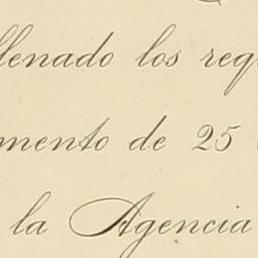 llenado los req
mento de 25
la Agencia